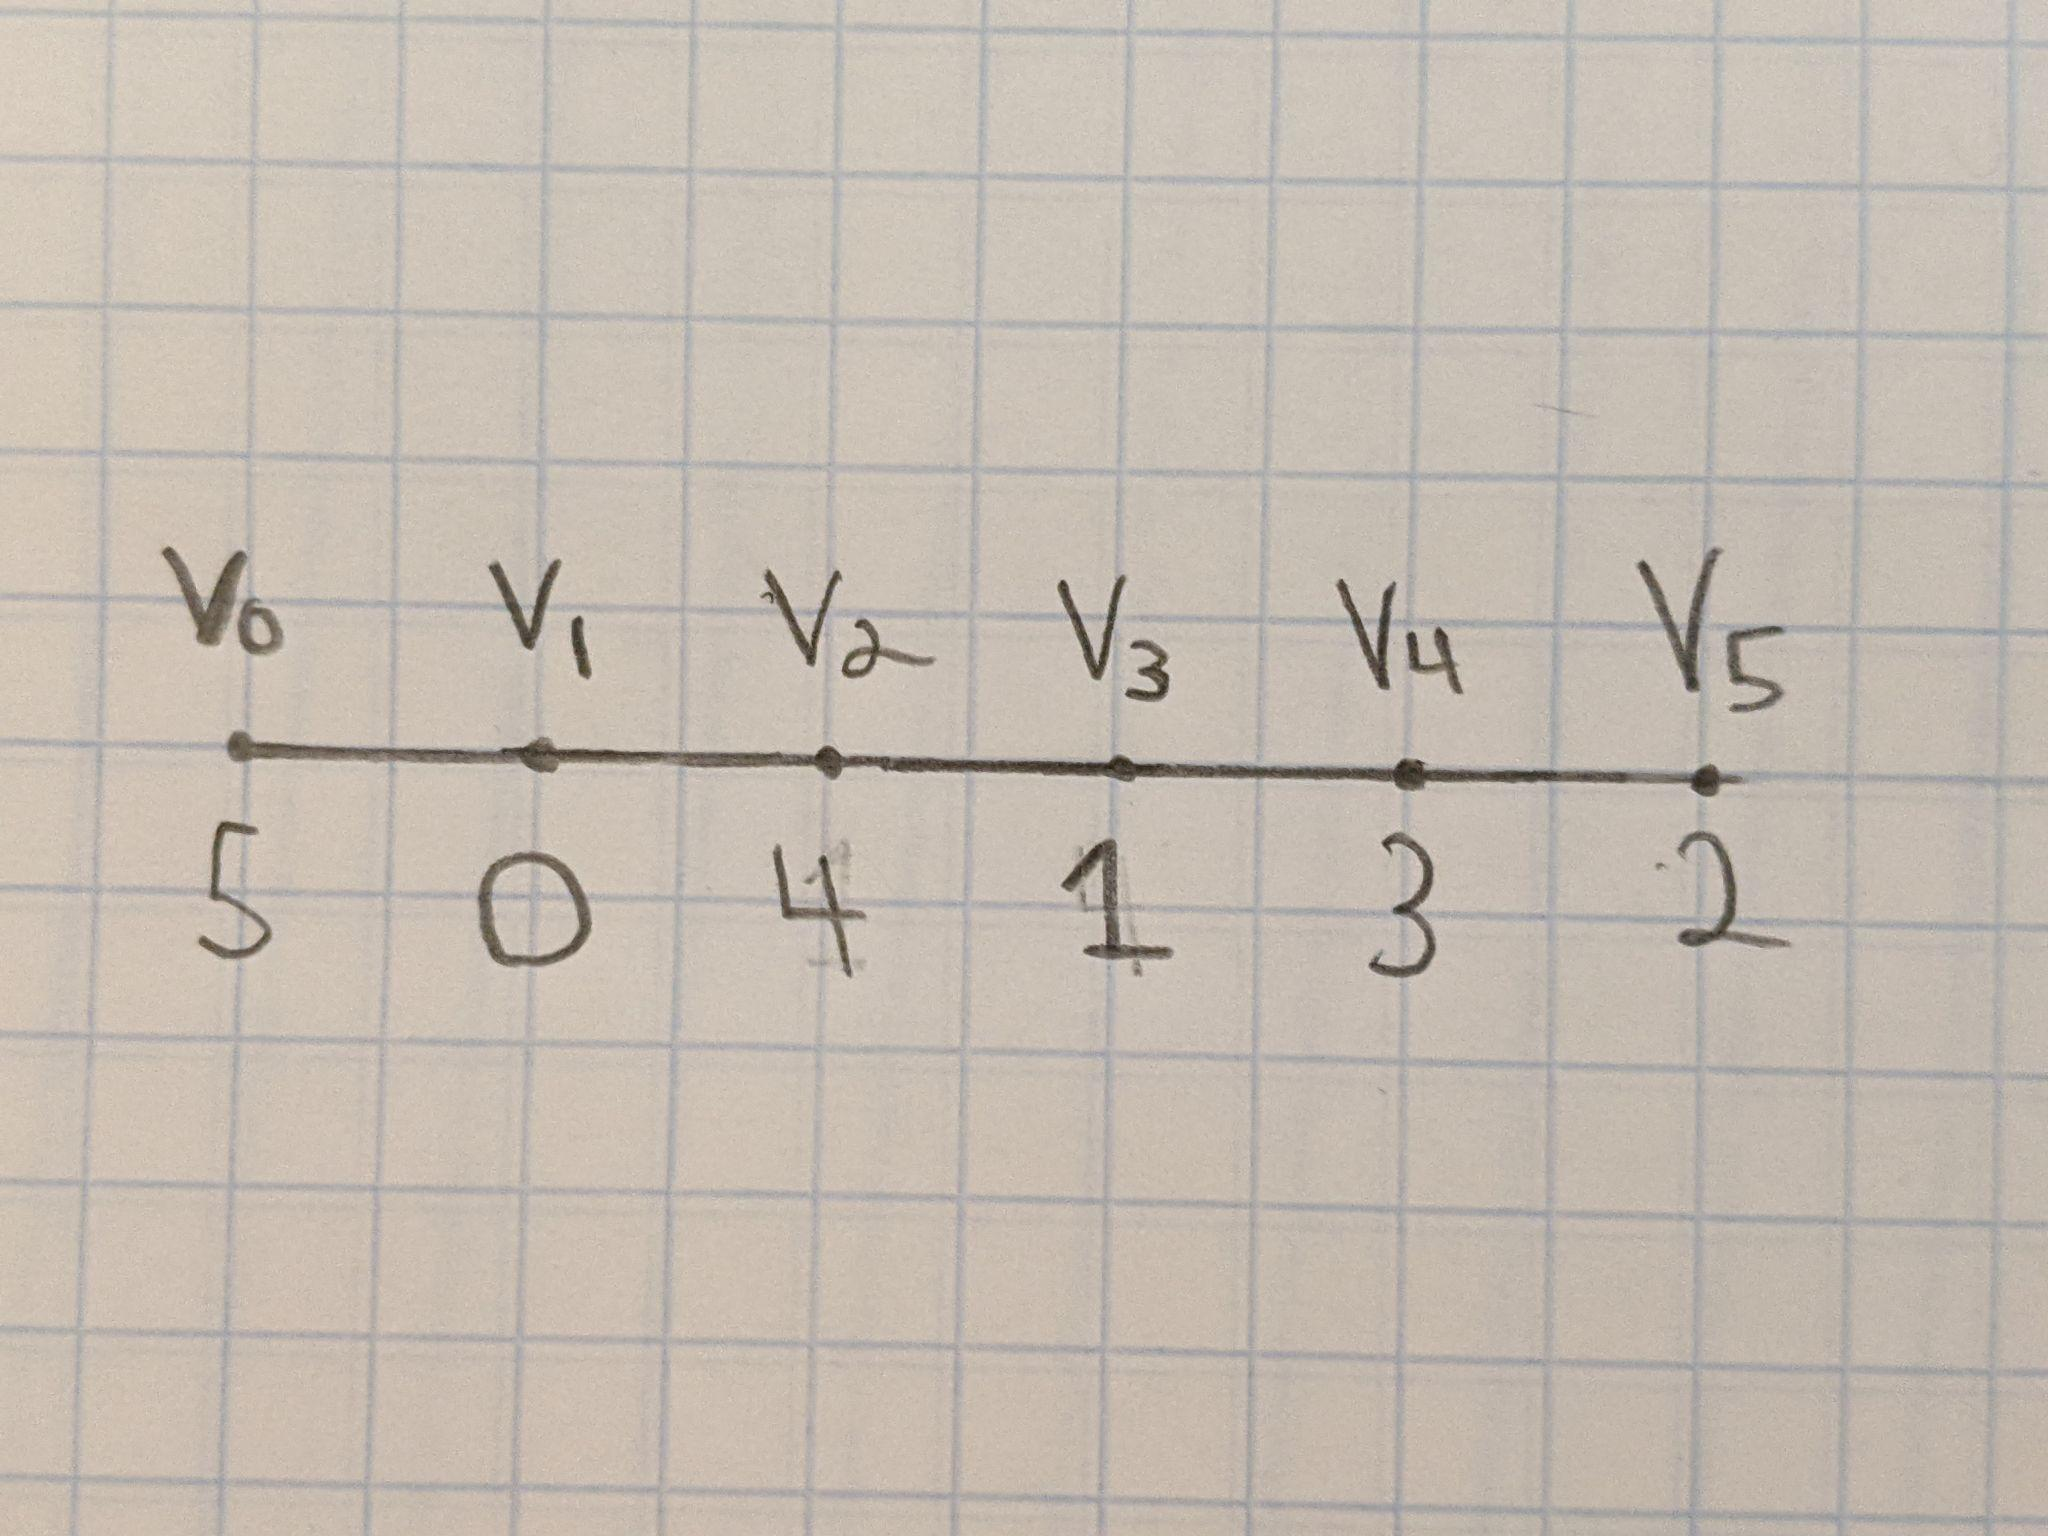 V0 V1 V2 V3 V4 V5
5 0 4 1 3 2